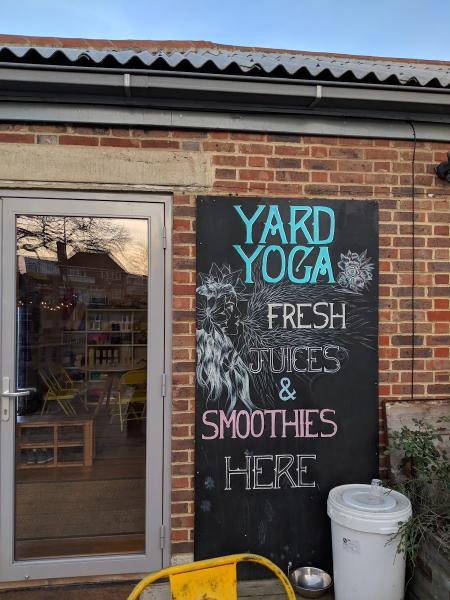 YARD
YOGA
FRESH
JUICES
&
SMOOTHIES
HERE